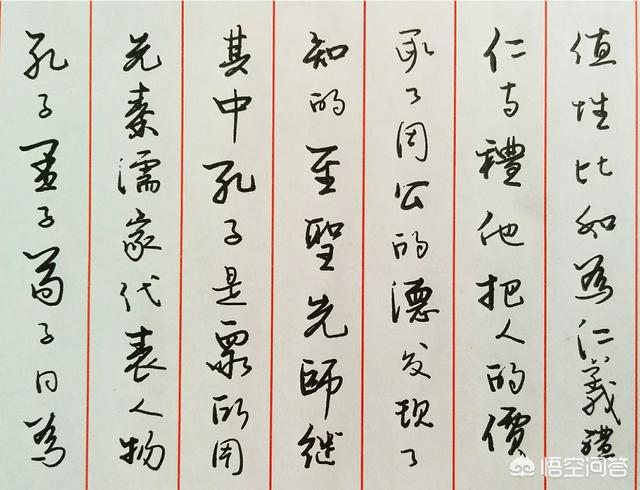 孔子孟子荀子同為
先秦儒家代表人物
其中孔子是眾所周
知的至聖先師继
承了周公的德发现了
仁与禮他把人的價
值性比如為仁義禮
悟空问答